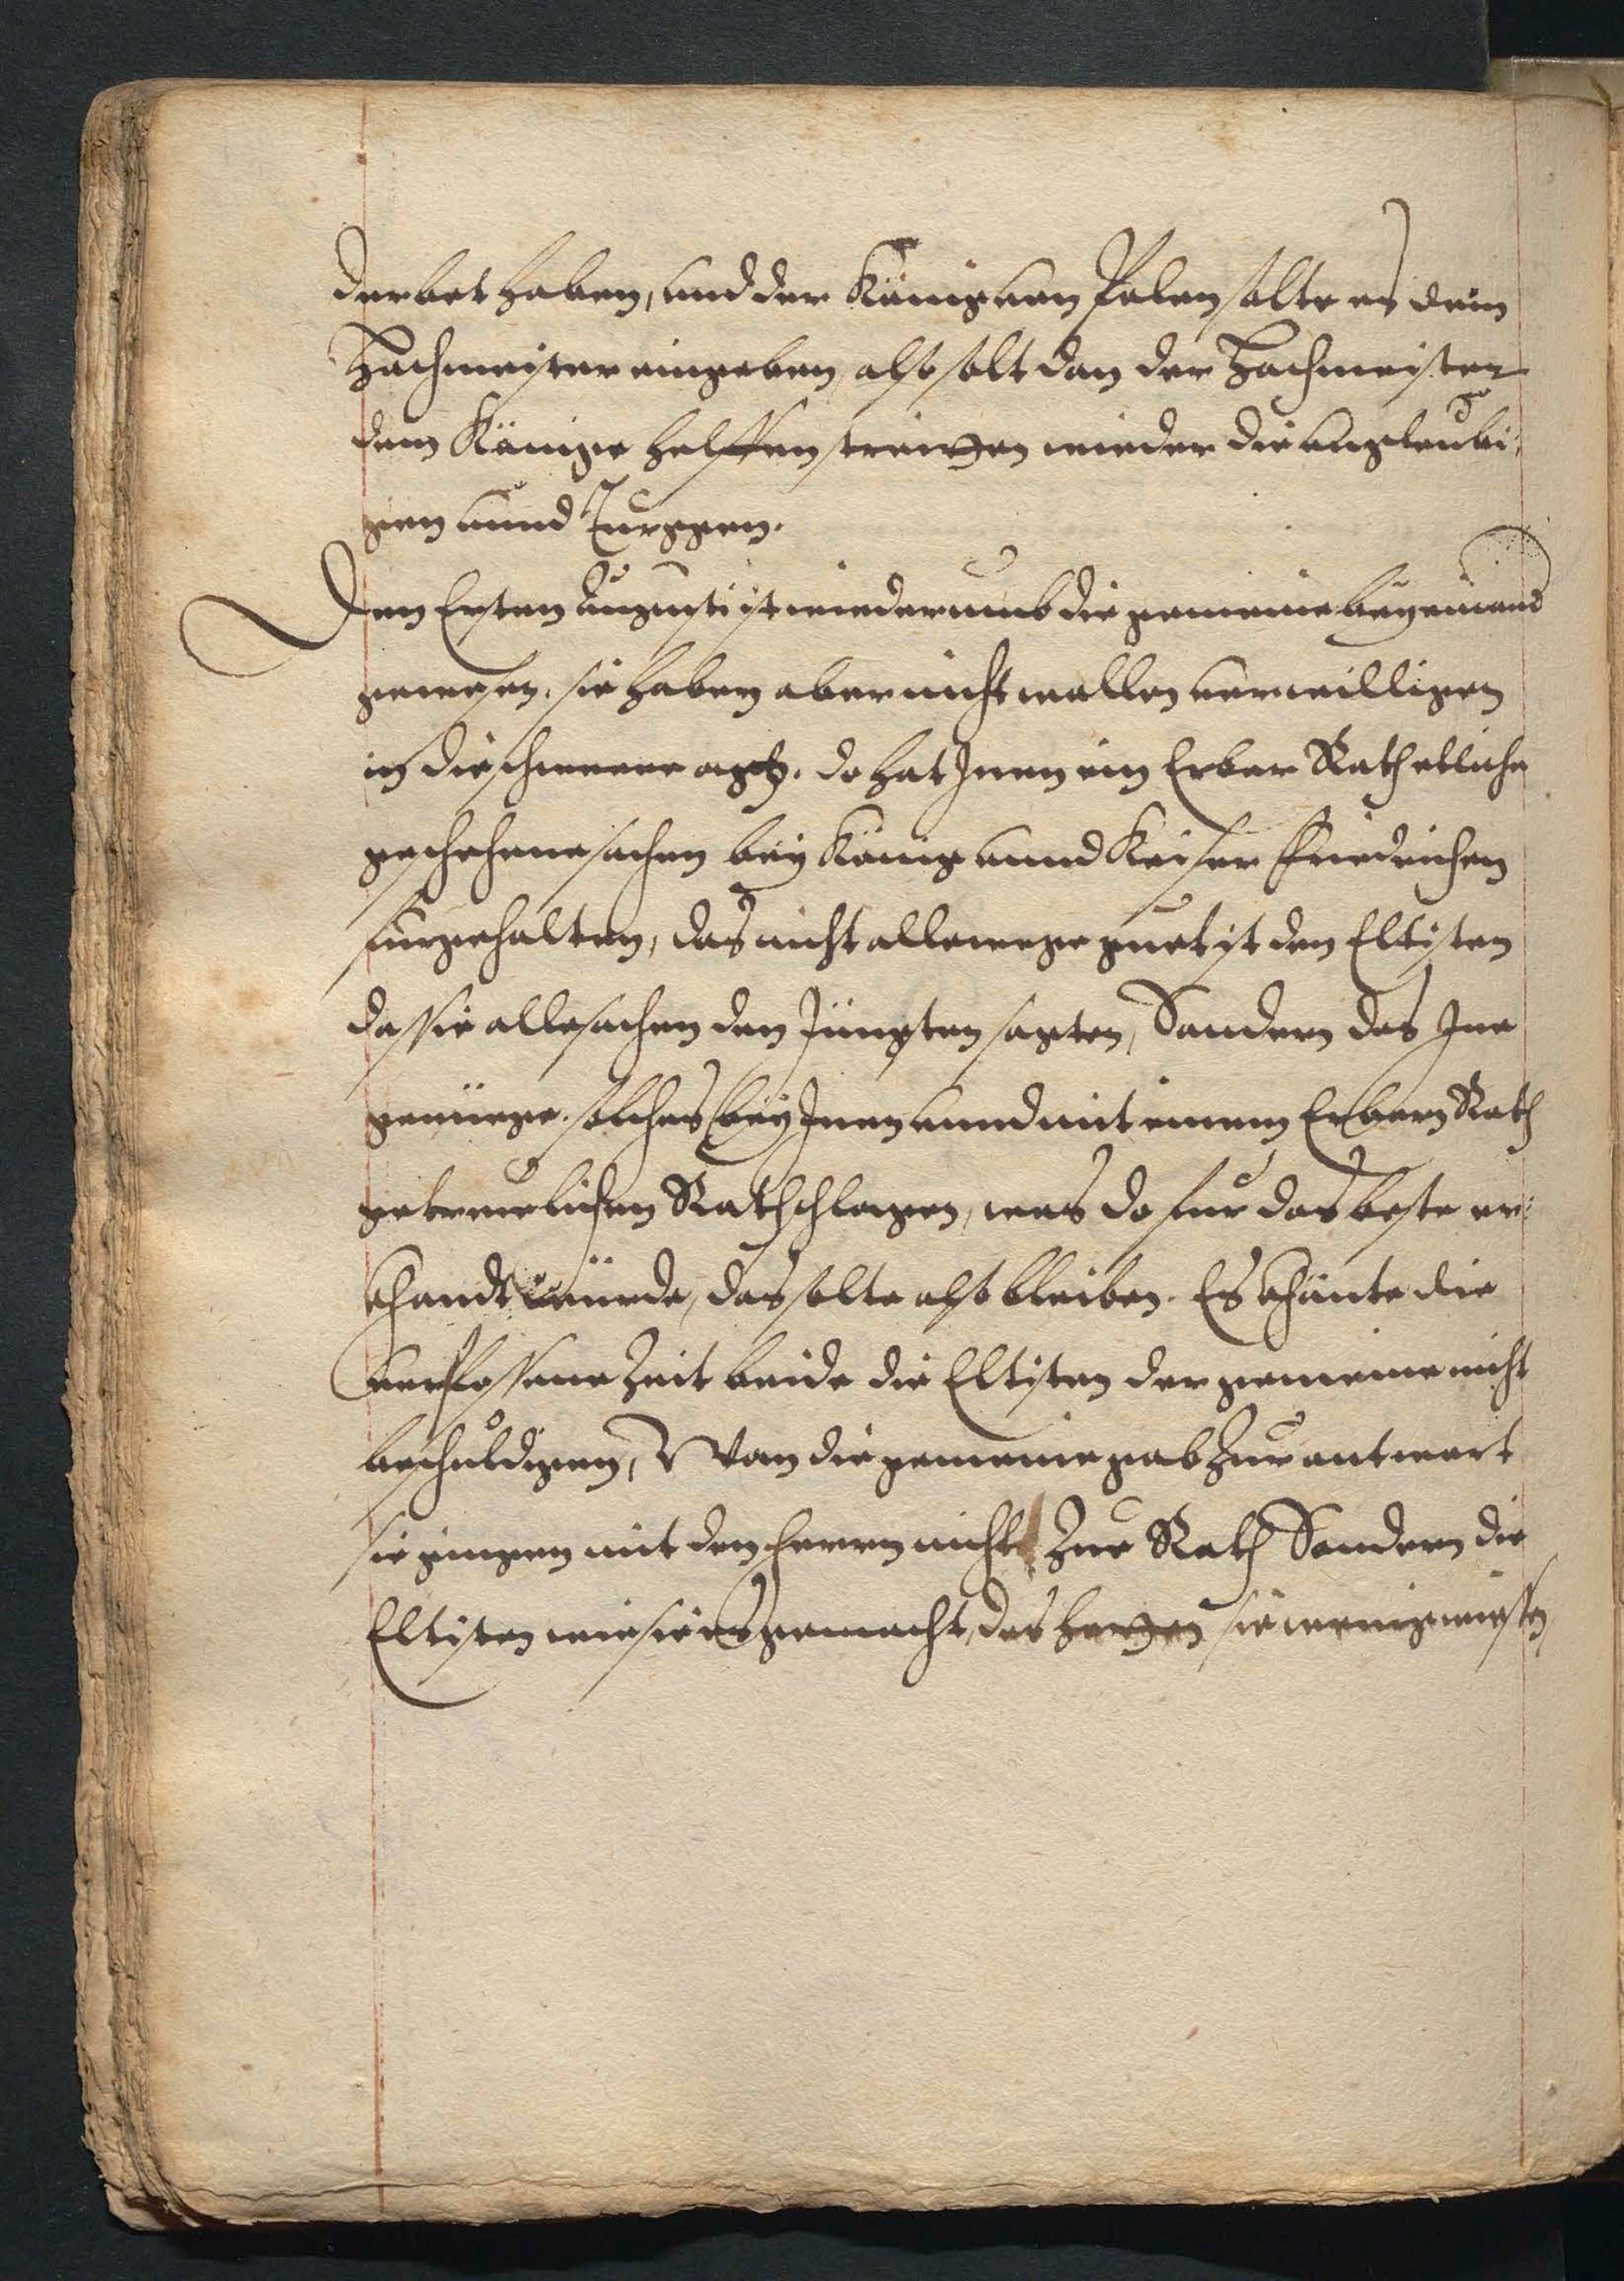 derbet haben, und der König von Polen solte es dem
Hochmeister eingeben, also solt dan der Hochmeister
dem Könige helffen streitten wieder die unglaubi,
gen unnd Turggen.
Den Ersten Augusti ist wiederumb die gemeine beyeinand
gewesen. sie haben aber nicht wollen verwilligen
in die schwere agtz. do hat Jnen ein Erbar Rath etliche
geschehene sachen bey König unnd Keiser Friedrichen
furgehalten, das nicht allewege guet ist den Eltisten
das sie alle sachen den Jüngsten sagten, Sondern das Jne
genüege. solches bey Jnen unnd mit einem Erbarn Rath
getreulichen Rathschlagen, was do fur das beste er:
khandt würde, das solte also bleiben. Es khönte die
verflossene Zeit beide die Eltisten der gemeine nicht
beschuldigen, Von die gemeine gab Zur antwort
sie gingen mit den Herrn nicht Zue Rath Sondern die
Eltisten wie sie es gemacht, des hetten sie wenig wissen